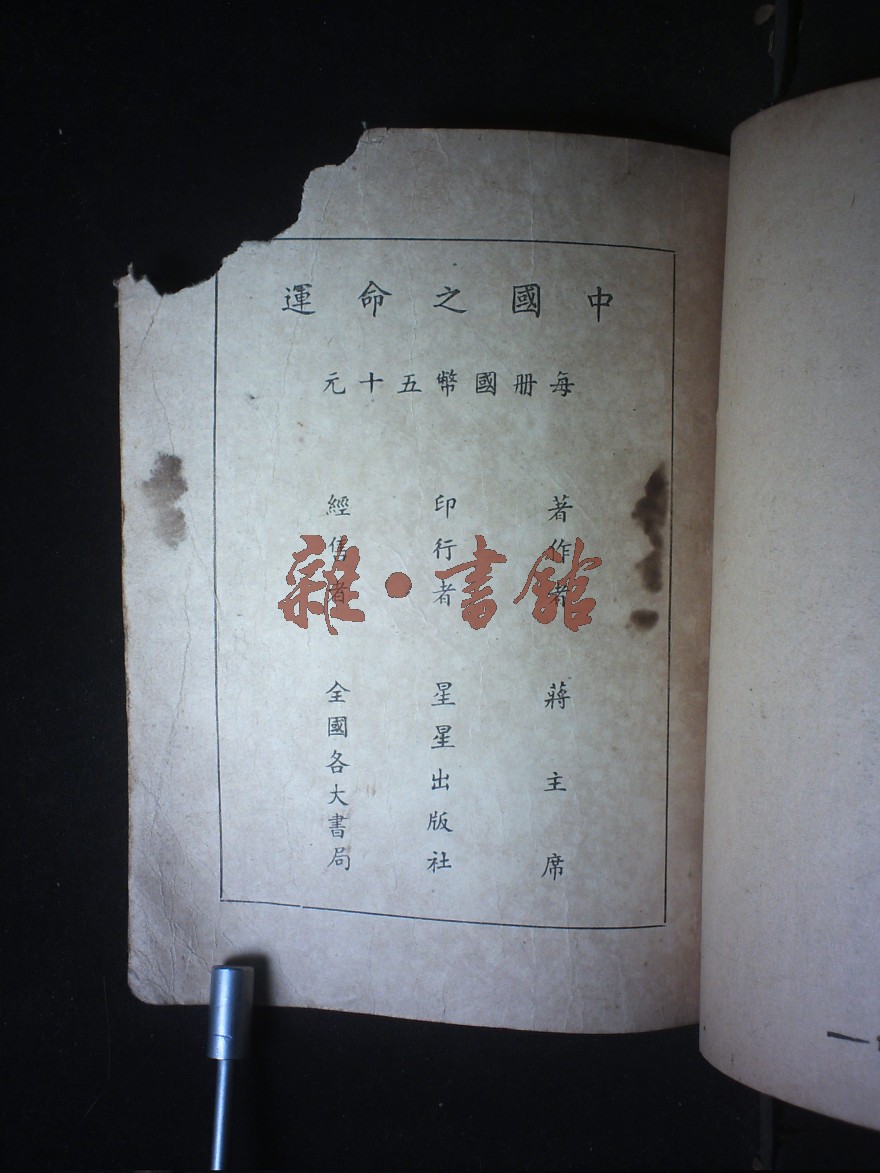 中國之命運
每册國幣五十元
著作者 蔣主席
印行者 星星出版社
經售者 全國各大書局
雜·書館